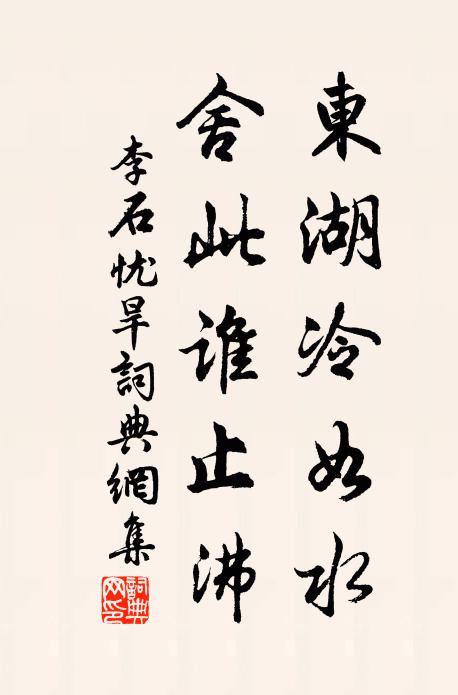 東湖冷如水
舍此誰止沸
李石忧旱詞典網集
詞典网印